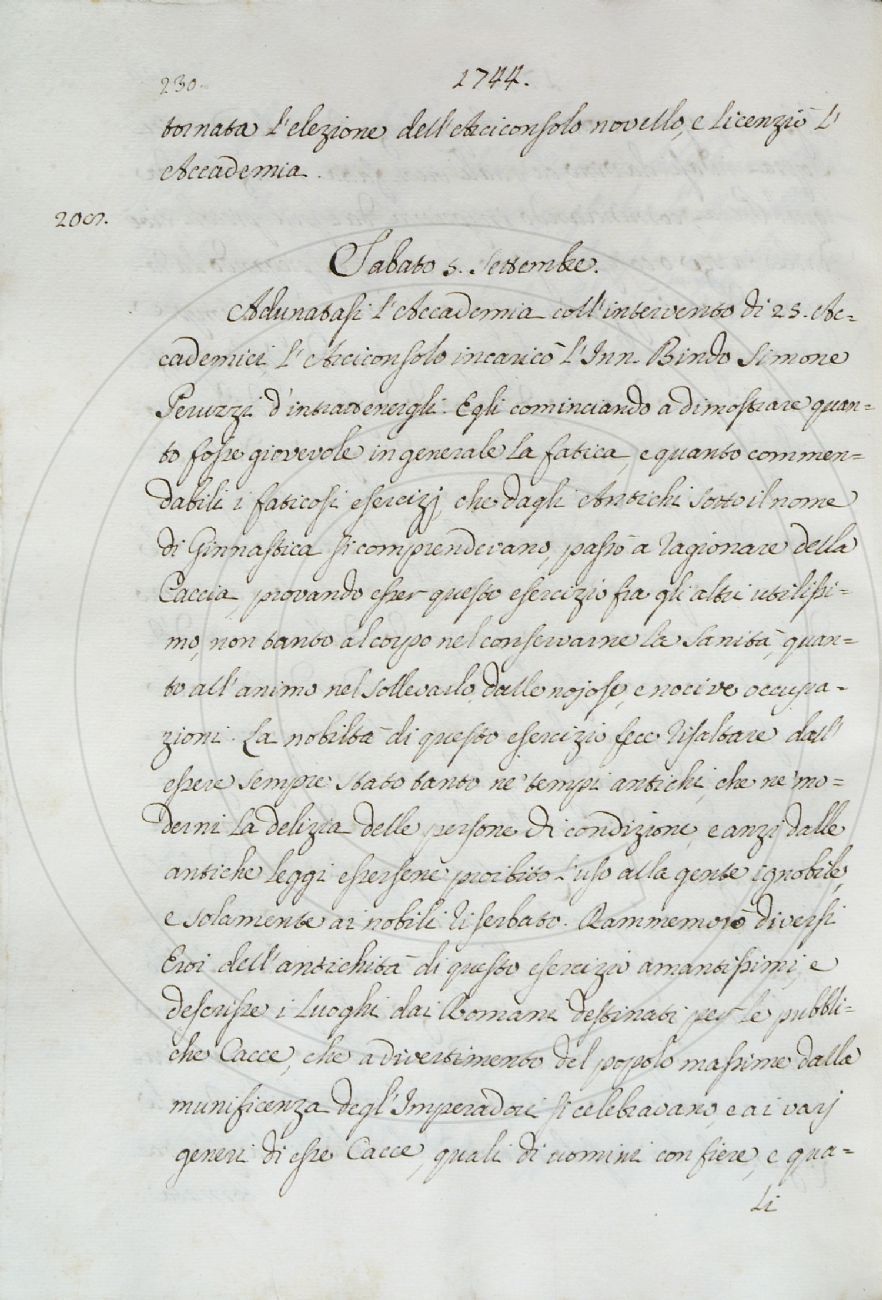 230.
1744.
tornata l'elezione dell'Arciconsolo novello, e licenziò l'
Accademia.
Sabato 5. Settembre.
Adunatasi l'Accademia coll'intervento di 25. Ac=
cademici l'Arciconsolo incaricò l'Inn. Bindo Simone
Peruzzi d'intrattenergli. Egli cominciando a dimostrare quan=
to fosse giovevole in generale la fatica, e quanto commen=
dabili i faticosi esercizj che dagli Antichi sotto il nome
di Ginnastica si comprendevano, passò a ragionare della
Caccia, provando esser questo esercizio fra gli altri utilissi=
mo, non tanto al corpo nel conservarne la sanità, quan=
to all'animo nel sollevarlo dalle nojose, e nocive occupa=
zioni. La nobiltà di questo esercizio fece risaltare dall'
essere sempre stato tanto ne' tempi antichi, che ne' mo=
derni la delizia delle persone di condizione, e anzi dalle
antiche leggi essersene proibito l'uso alla gente ignobile,
e solamente ai nobili riserbato. Rammemorò diversi
Eroi dell'antichità di questo esercizio amantissimi, e
descrisse i luoghi dai Romani destinati per le pubbli=
che Cacce, che a divertimento del popolo massime dalla
munificenza degl'Imperadori si celebravano, e a i varj
generi di esse Cacce, quali di uomini con fiere, e qua=
li